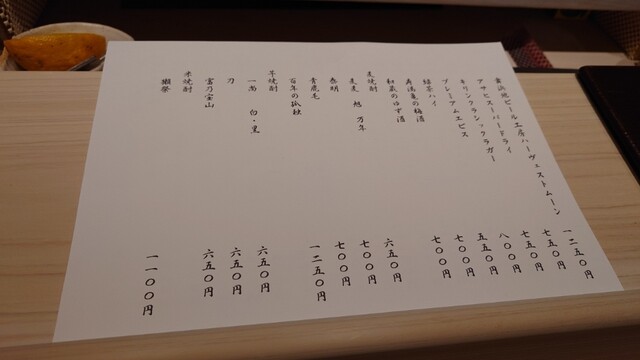 舞浜地ビール工房ハーヴェストムーン 一二五〇円
アサヒスーパードライ 七五〇円
キリンクラシックラガー 七五〇円
プレミアムエビス 八〇〇円
緑茶ハイ 五五〇円
の梅酒 七〇〇円
和蔵のゆず酒 七〇〇円
麦焼酎
麦麦 旭 万年 六五〇円
泰明 七〇〇円
青鹿毛 七〇〇円
百年の孤独 一二五〇円
芋焼酎
一尚 白・黒 六五〇円
刀 六五〇円
富乃宝山 六五〇円
米焼酎
獺祭 一一〇〇円